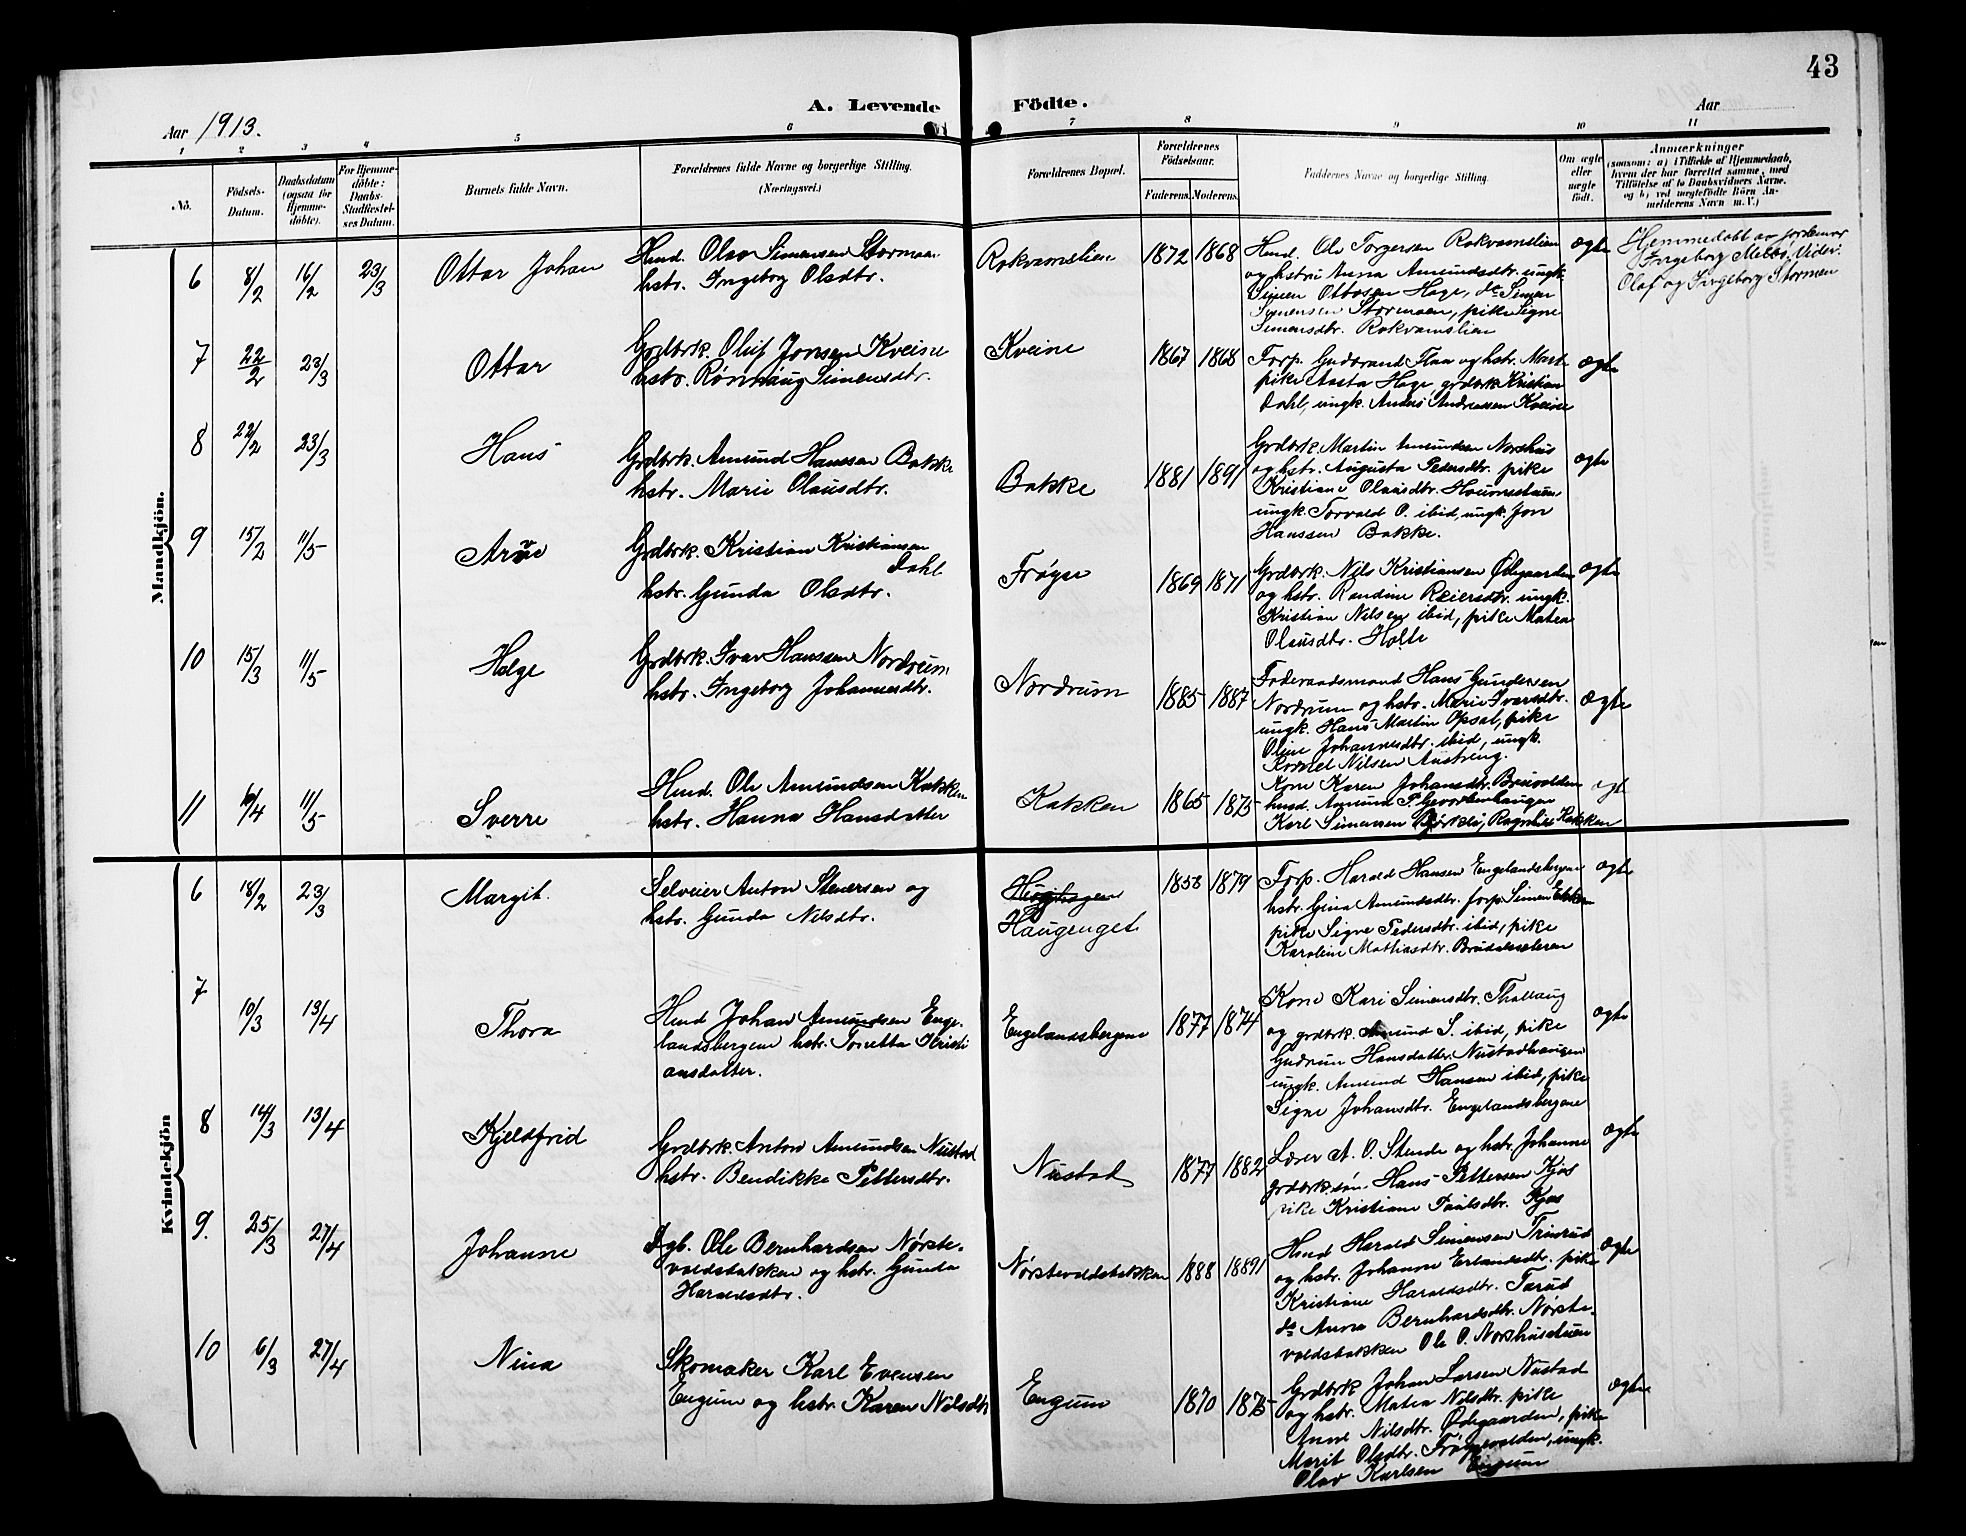 43
A. Levende Födte.
Aar 1913.
Aar
1 2 3 4 5 6 7 8 9 10 11
Nô.
Födsels-Datum.
Daabsdatum (ogsaa for Hjemmedöbte).
For Hjemmedöbte: Daabs-Stadfæstelses Datum.
Barnets fulde Navn.
Forældrenes fulde Navne og borgerlige Stilling. (Næringsvei.)
Forældrenes Bopæl.
Forældrenes Födselsaar.
Faderens. Moderens.
Faddernes Navne og borgerlige Stilling.
Om ægte eller uægte födt.
Anmærkninger
(saasom: a) i Tilfælde af Hjemmedaab, hvem der har forrettet samme, med Tilföielse af to Daabsvidners Navne, og b) ved uægtefödte Börn Anmelderens Navn m. V.)
Mandkjön.
6 8/2 16/2 23/3 Ottar Johan
Husd. Olav Simensen Stormoen
hstr. Ingeborg Olsdtr.
Rokvamslien 1872 1868
Husd. Ole Torgersen Rokvamslien
og hstru Anna Amundsdtr. ungk.
Simen Ottosen Hage, do Simen
Simensen Stormoen, pike Signe
Simensdtr. Rokvamslien
ægte
Hjemmedøbt av jordemor
Ingeborg Melbø. Vidn:
Olaf og Ingeborg Stormoen
7 22/2 23/3 Ottar
Grdbrk. Oluf Jonsen Kveine
hstr. Rønnaug Simensdtr.
Kveine 1867 1868
Forp. Gudbrand Flaa og hstr. Mart
pike Aasta Hage, grdbrk Kristian
Dahl, ungk. Anders Andreassen Kveine
ægte
8 22/2 23/3 Hans
Grdbrk. Amund Hanssen Bakke
hstr. Marie Olausdtr.
Bakke 1881 1891
Grdbrk. Martin Amundsen Norshus
og hstr. Augusta Pedersdtr. pike
Kristiane Olausdtr.
ungk. Torvald O. ibid, ungk. Jon
Hanssen Bakke.
ægte
9 15/2 11/5 Arve
Grdbrk. Kristian Kristiansen
Dahl
hstr. Gunda Olsdtr.
Frøyse 1869 1871
Grdbrk. Nils Kristiansen Ødegaarden
og hstr. Randine Reiersdtr. ungk.
Kristian Nilsen ibid, pike Matea
Olausdtr. Holte
ægte
10 15/3 11/5 Helge
Grdbrk. Ivar Hanssen Nordrum
hstr. Ingeborg Johannesdtr.
Nordrum 1885 1887
Føderaadsmand Hans Gundersen
Nordrum og hstr. Marie Iversdtr.
ungk. Hans Martin Opsal, pike
Oline Johannesdtr. ibid, ungk.
Kornel Nilsen Austreng.
ægte
11 6/4 11/5 Sverre
Husd. Ole Amundsen Kakken
hstr. Hanna Hansdatter
Kakken 1865 1875
Kone Karen Johansdtr. Breivolden
husd. Amund P.
Karl Simensen Bjørkli, Ragnhild Kakken
ægt
Kvindekjön
6 18/2 23/3 Margit.
Selveier Anton Stenersen og
hstr. Gunda Nilsdtr.
Haugenget 1858 1879
Forp. Harald Hansen Engelandsbergene
hstr. Gina Amundsdtr. forp. Simen
pike Signe Pedersdtr. ibid, pike
Karoline Mathiasdtr.
ægte
7 10/3 13/4 Thora
Husd Johan Amundsen Enge-
landsbergene hstr. Tonetta Kristi
ansdatter.
Engelandsbergene 1877 1874
Kone Kari Simensdtr. Thallaug
og grdbrk. Amund S. ibid, pike
Gudrun Hansdatter Nustadhaugen
ungk. Amund Hansen ibid, pike
Signe Johansdtr. Engelandsbergene
ægte
8 14/3 13/4 Kjeldfrid
Grdbrk. Anton Amundsen Nustad
hstr. Bendikke Pettersdtr.
Nustad 1877 1882
Lærer A. O. Stende og hstr. Johanne
grdbrk.søn. Hans Pettersen Kjos
pike Kristiane Paulsdtr. Kjos
ægte
9. 25/3 27/4 Johanne
Dgb. Ole Bernhardsen Nørste-
voldsbakken og hstr. Gunda
Haraldsdtr.
Nørstevoldsbakken 1888 1889
Husd Harald Simensen Trøsrud
og hstr. Johanne Erlandsdtr. pike
Kristiane Haraldsdtr. Tørud
do Anna Bernhardsdtr. Nørste-
voldsbakken Ole O. Norshusstuen
ægte
10 6/3 27/4 Nina
Skomaker Karl Evensen
Engum og hstr. Karen Nilsdtr
Engum 1870 1875
Grdbrk Johan Larsen Nustad
og hstr. Matea Nilsdtr. pike
Anne Nilsdtr. Ødegaarden, pike
Marit Olsdtr. Frøysevolden, ungk.
Olav Karlsen Engum
ægte